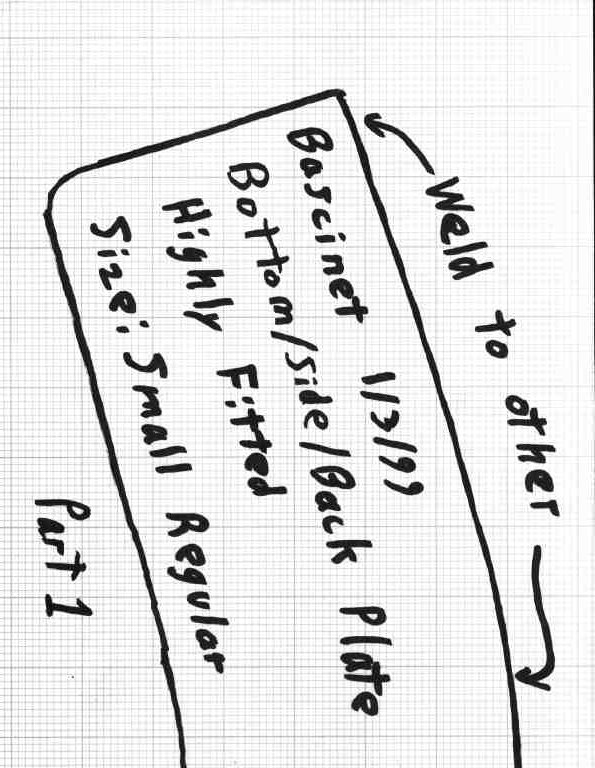 Weld to other
Bascinet 1/3/99
Bottom/Side/Back Plate
Highly Fitted
Size: Small Regular
Part 1